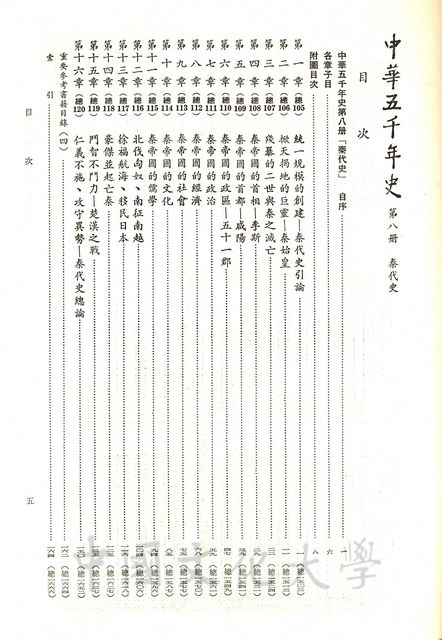 中華五千年史 第八冊 秦代史
目次
中華五千年史第八冊「秦代史」 自序 一
各章子目 六
附圖目次 八
第一章(總105) 統一規模的創建—秦代史引論 一
第二章(總106) 掀天揭地的巨靈—秦始皇
第三章(總107) 殘暴的二世與秦之滅亡
第四章(總108) 秦帝國的首相—李斯
第五章(總109) 秦帝國的首都—咸陽
第六章(總110) 秦帝國的政區—五十一郡
第七章(總111) 秦帝國的政治
第八章(總112) 秦帝國的經濟
第九章(總113) 秦帝國的社會
第十章(總114) 秦帝國的文化
第十一章(總115) 秦帝國的儒學
第十二章(總116) 北伐匈奴、南征南越
第十三章(總117) 徐福航海、移民日本
第十四章(總118) 豪傑並起亡秦
第十五章(總119) 鬥智不鬥力—楚漢之戰
第十六章(總120) 仁義不施、攻守異勢—秦代史總論
重要參考書籍目錄(四)
索引
目次
五
中國文化大學